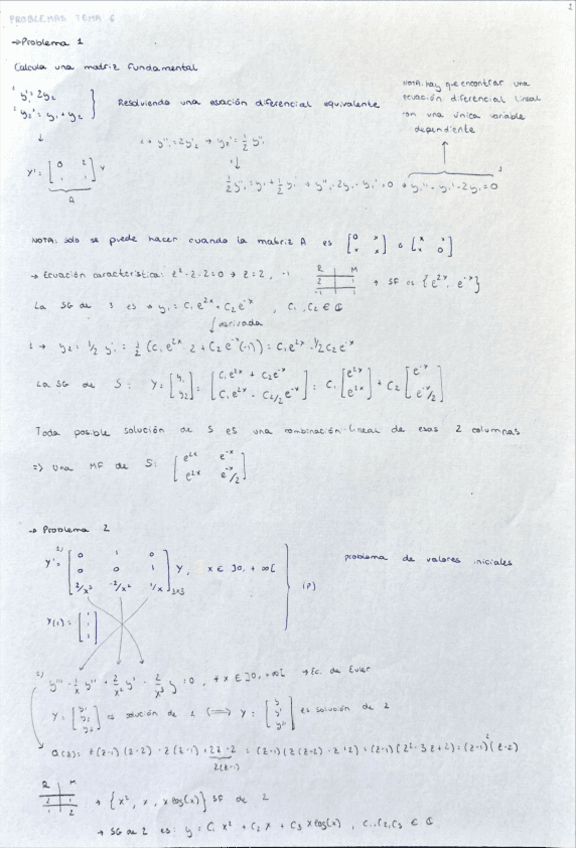 2
PROBLEMAS TEMA 6
→Problema 1
Calcula una matriz fundamental
y₁' = 2y₂
y₂' = y₁ + y₂
Resolviendo una ecuación diferencial equivalente
NOTA: hay que encontrar una
ecuación diferencial lineal
con una única variable
dependiente
y₁'' = 2y₂' → y₂' = ½ y₁''
Y' = [0 2; 1 1] Y
A
½ y₁'' = y₁ + ½ y₁' → y₁'' - 2y₁ - y₁' = 0 → y₁'' - y₁' - 2y₁ = 0
NOTA: solo se puede hacer cuando la matriz A es [0 x; x x] o [x x; x 0]
→ Ecuación característica: z² - z - 2 = 0 → z = 2, -1
R M
2 1
-1 1
→ SF es {e^2x, e^-x}
La SG de 3 es → y₁ = C₁e^2x + C₂e^-x , C₁, C₂ ∈ ℂ
↓ derivada
1 → y₂ = 1/2 y₁' = ½ (C₁e^2x · 2 + C₂e^-x(-1)) = C₁e^2x - 1/2 C₂e^-x
La SG de S: Y = [y₁; y₂] =
Toda posible solución de S es una combinación lineal de esas 2 columnas
=> Una MF de S:
→ Problema 2
Y' = [0 1 0; 0 0 1; 2/x³ -2/x² 1/x]₃ₓ₃ Y, x ∈ ]0, +∞[
problema de valores iniciales
(P)
Y(1) = [1; 1; 1]
2) y''' - 1/x y'' + 2/x² y' - 2/x³ y = 0, ∀ x ∈ ]0, +∞[ → Ec. de Euler
es solución de 2
Q(z) = z(z-1)(z-2) - z(z-1) + 2z-2 = (z-1)(z(z-2) - z+2) = (z-1)(z²-3z+2) = (z-1)²(z-2)
2(z-1)
R M
2 1
1 2
→ {x², x, x log(x)} SF de 2
→ SG de 2 es: y = C₁x² + C₂x + C₃ x log(x) , C₁, C₂, C₃ ∈ ℂ